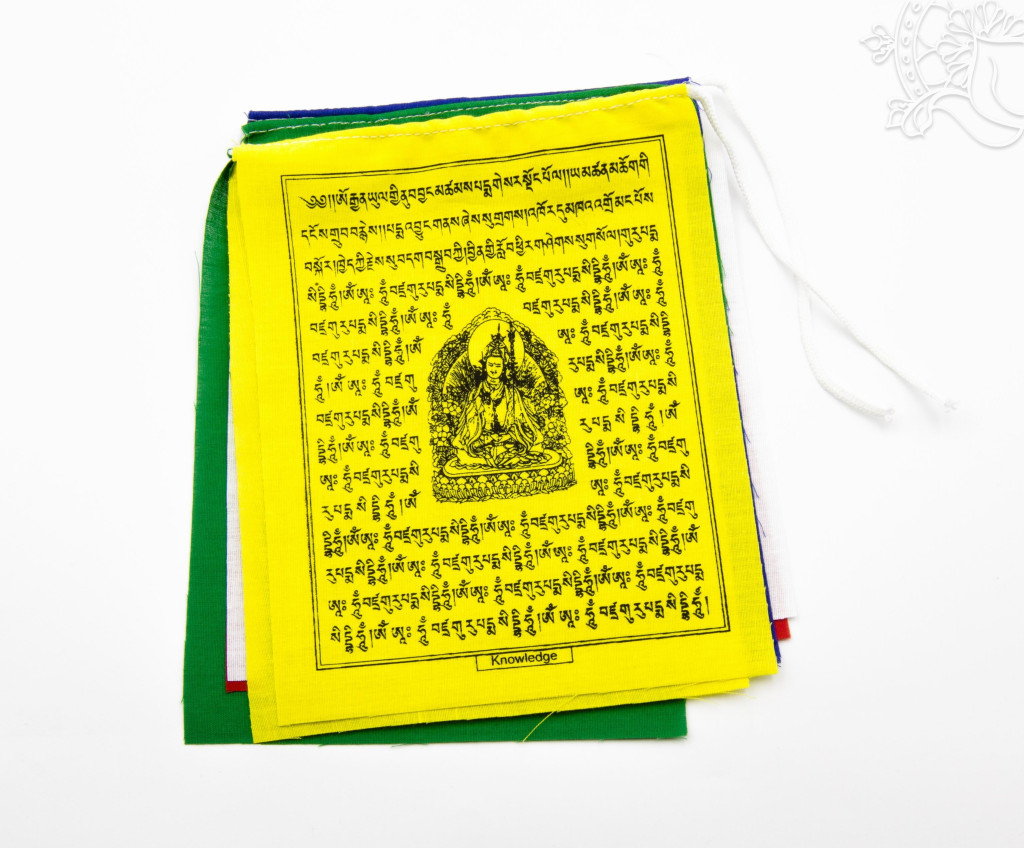 ༄༅།།ཨོ་རྒྱན་ཡུལ་གྱི་ནུབ་བྱང་མཚམས་པདྨ་གེ་སར་སྡོང་པོ་ལ།།ཡ་མཚན་མཆོག་གི
དངོས་གྲུབ་བརྙེས།།པདྨ་འབྱུང་གནས་ཞེས་སུ་གྲགས།འཁོར་དུ་མཁའ་འགྲོ་མང་པོས
བསྐོར།ཁྱེད་ཀྱི་རྗེས་སུ་བདག་བསྒྲུབ་ཀྱི།བྱིན་གྱི་རློབ་ཕྱིར་གཤེགས་སུ་གསོལ།གུ་རུ་པདྨ
སིདྡྷི་ཧཱུྃ།ཨོཾ་ཨཱཿ ཧཱུྃ་བཛྲ་གུ་རུ་པདྨ་སིདྡྷི་ཧཱུྃ།ཨོཾ་ཨཱཿ ཧཱུྃ
བཛྲ་གུ་རུ་པདྨ་སིདྡྷི་ཧཱུྃ།ཨོཾ་ཨཱཿ ཧཱུྃ བཛྲ་གུ་རུ་པདྨ་སིདྡྷི་ཧཱུྃ།ཨོཾ
བཛྲ་གུ་རུ་པདྨ་སིདྡྷི་ཧཱུྃ།ཨོཾ ཨཱཿ ཧཱུྃ་བཛྲ་གུ་རུ་པདྨ་སིདྡྷི
ཧཱུྃ།ཨོཾ་ཨཱཿ ཧཱུྃ་བཛྲ་གུ རུ་པདྨ་སིདྡྷི་ཧཱུྃ།ཨོཾ་ཨཱཿ ཧཱུྃ
བཛྲ་གུ་རུ་པདྨ་སིདྡྷི་ཧཱུྃ།ཨོཾ ཨཱཿ ཧཱུྃ་བཛྲ་གུ་རུ་པདྨ་སི
དྡྷི་ཧཱུྃ།ཨོཾ་ཨཱཿ ཧཱུྃ་བཛྲ་གུ རུ་པདྨ་སིདྡྷི་ཧཱུྃ།ཨོཾ
ཨཱཿ ཧཱུྃ་བཛྲ་གུ་རུ་པདྨ་སི དྡྷི་ཧཱུྃ།ཨོཾ་ཨཱཿ ཧཱུྃ་བཛྲ་གུ
རུ་པདྨ་སིདྡྷི་ཧཱུྃ།ཨོཾ ཨཱཿ ཧཱུྃ་བཛྲ་གུ་རུ་པདྨ་སི
དྡྷི་ཧཱུྃ།ཨོཾ་ཨཱཿ ཧཱུྃ་བཛྲ་གུ་རུ་པདྨ་སིདྡྷི་ཧཱུྃ།ཨོཾ་ཨཱཿ ཧཱུྃ་བཛྲ་གུ་རུ་པདྨ་སིདྡྷི་ཧཱུྃ།ཨོཾ་ཨཱཿ ཧཱུྃ་བཛྲ་གུ
རུ་པདྨ་སིདྡྷི་ཧཱུྃ།ཨོཾ་ཨཱཿ ཧཱུྃ་བཛྲ་གུ་རུ་པདྨ་སིདྡྷི་ཧཱུྃ།ཨོཾ་ཨཱཿ ཧཱུྃ་བཛྲ་གུ་རུ་པདྨ་སིདྡྷི་ཧཱུྃ།ཨོཾ
ཨཱཿ ཧཱུྃ་བཛྲ་གུ་རུ་པདྨ་སིདྡྷི་ཧཱུྃ།ཨོཾ་ཨཱཿ ཧཱུྃ་བཛྲ་གུ་རུ་པདྨ་སིདྡྷི་ཧཱུྃ།ཨོཾ་ཨཱཿ ཧཱུྃ་བཛྲ་གུ་རུ་པདྨ
སིདྡྷི་ཧཱུྃ།ཨོཾ་ཨཱཿ ཧཱུྃ་བཛྲ་གུ་རུ་པདྨ་སིདྡྷི་ཧཱུྃ།ཨོཾ་ཨཱཿ ཧཱུྃ་བཛྲ་གུ་རུ་པདྨ་སིདྡྷི་ཧཱུྃ།
Knowledge